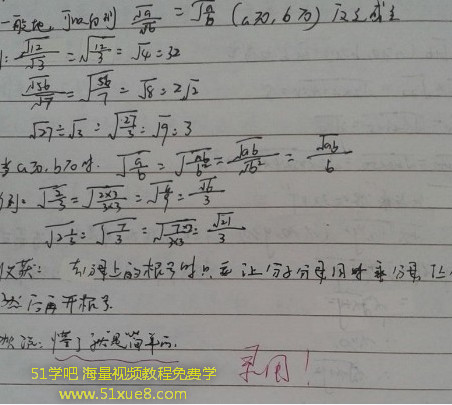 一般地, 可以得到 √a/√b = √(a/b) (a≥0, b>0) 反之成立
: √12/√3 = √(12/3) = √4 = 32
√56/√7 = √(56/7) = √8 = 2√2
√27÷√3 = √(27/3) = √9 = 3
当a≥0, b>0时. √(a/b) = √(ab/b²) = √ab/√b² = √ab/b
例: √(2/3) = √(2×3/3×3) = √(6/9) = √6/3
√(2 1/3) = √(7/3) = √(7×3/3×3) = √21/3
收获: 去分母上的根号时, 只要让分子分母同时乘分母,
然后再开根号.
懂了就是简单的.
采用!
51学吧 海量视频教程免费学
www.51xue8.com